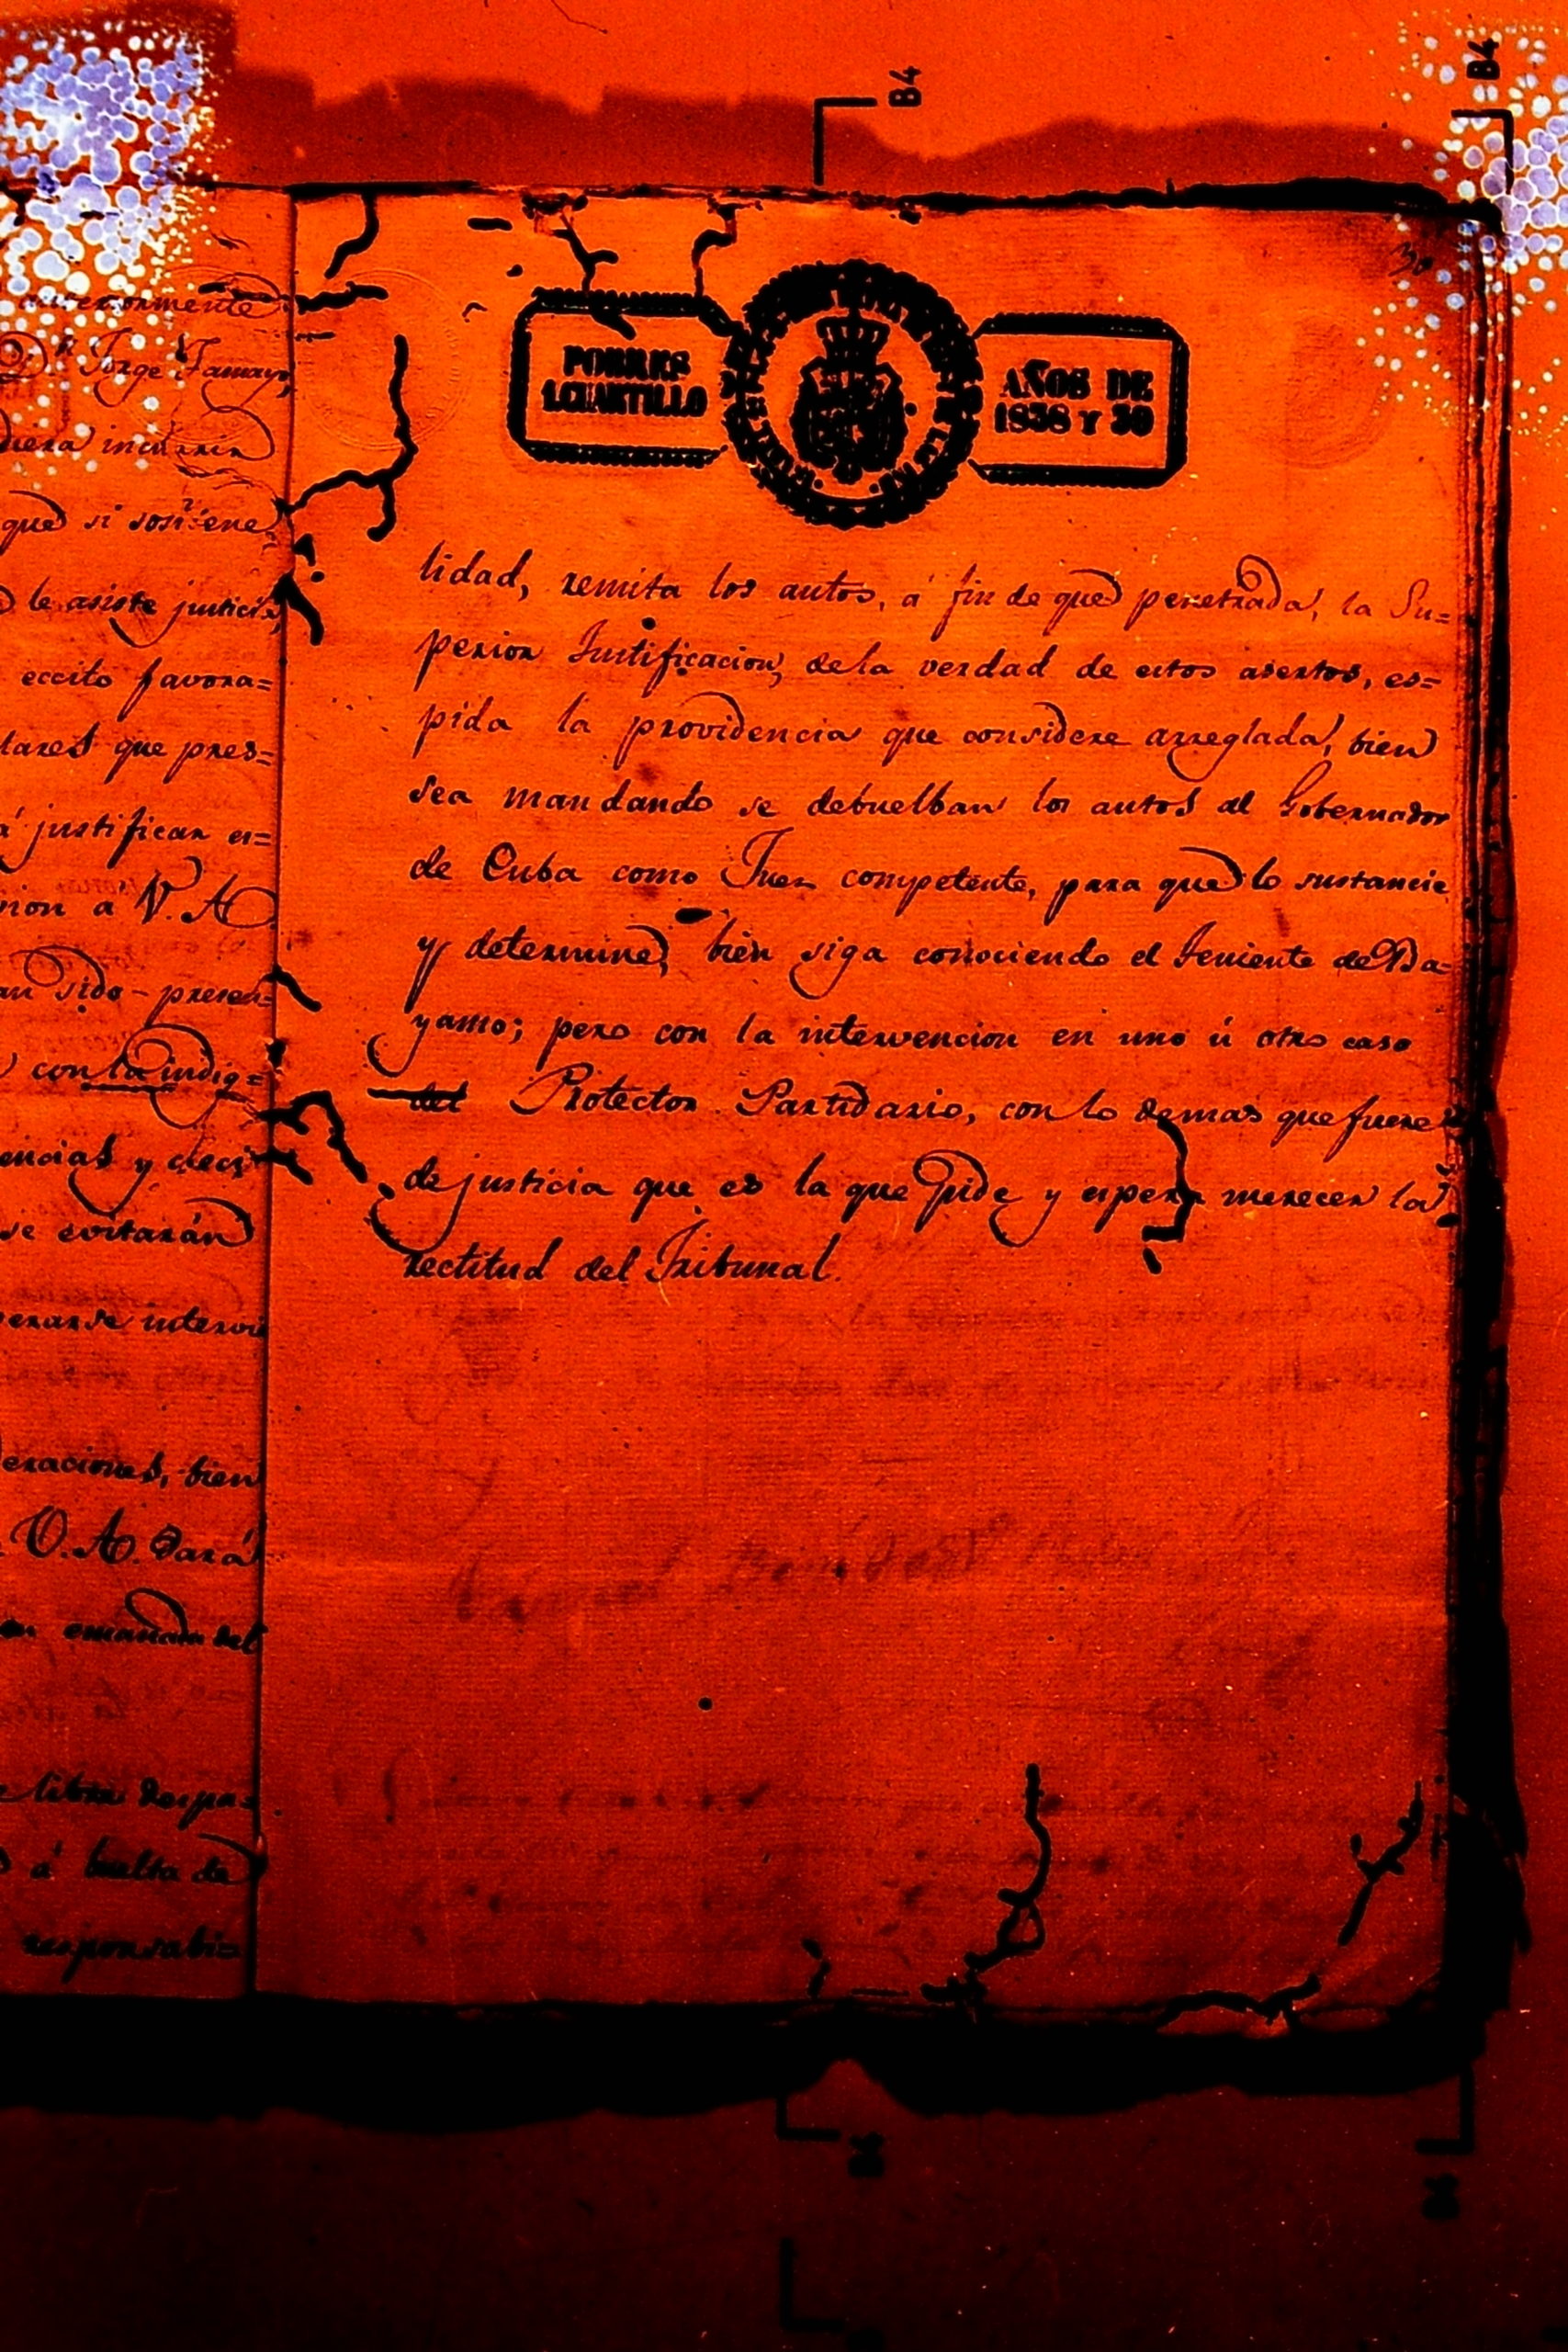 anteriormente
Dn Jorge Tamayo,
diera incurrir
que si sostiene
le asiste justicia,
eccito favora=
lares que pres=
á justificar es=
sion á V. A
an sido presen=
con la indig=
encias y deci
se evitarán
perarse
eraciones, bien
V. A. dará
emanada del
libra despa=
á buelta de
responsabi=
30
POBRES
1. CUARTILLO
AÑOS DE
1838 Y 39
lidad, remita los autos, á fin de que penetrada, la Su=
perior Justificacion, de la verdad de estos asertos, es=
pida la providencia que considere arreglada, bien
sea mandando se debuelban los autos al Gobernador
de Cuba como Juez competente, para que lo sustancie
y determine, bien siga conociendo el Teniente de Ba=
yamo; pero con la intervencion en uno ú otro caso
del Protector Partidario, con lo demas que fuere
de justicia que es la que pide y espera merecer la
rectitud del Tribunal.
B4
B4